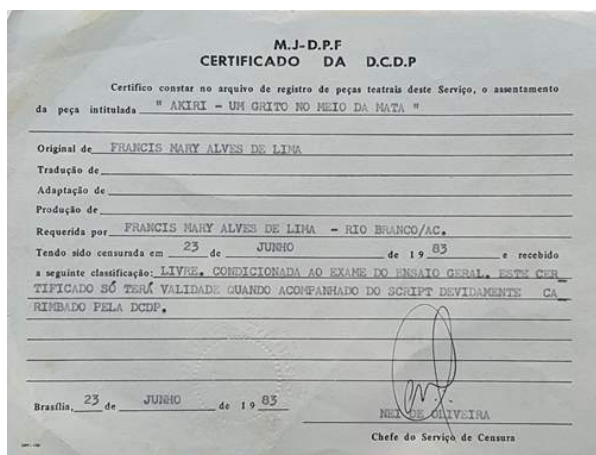 M.J-D.P.F
CERTIFICADO DA D.C.D.P
Certifico constar no arquivo de registro de peças teatrais deste Serviço, o assentamento
da peça intitulada " AKIRI - UM GRITO NO MEIO DA MATA "
Original de FRANCIS MARY ALVES DE LIMA
Tradução de
Adaptação de
Produção de
Requerida por FRANCIS MARY ALVES DE LIMA - RIO BRANCO/AC.
Tendo sido censurada em 23 de JUNHO de 1983 e recebido
a seguinte classificação: LIVRE. CONDICIONADA AO EXAME DO ENSAIO GERAL. ESTE CER_
TIFICADO SÓ TERÁ VALIDADE QUANDO ACOMPANHADO DO SCRIPT DEVIDAMENTE CA_
RIMBADO PELA DCDP.
Brasília, 23 de JUNHO de 1983
NEI DE OLIVEIRA
Chefe do Serviço de Censura